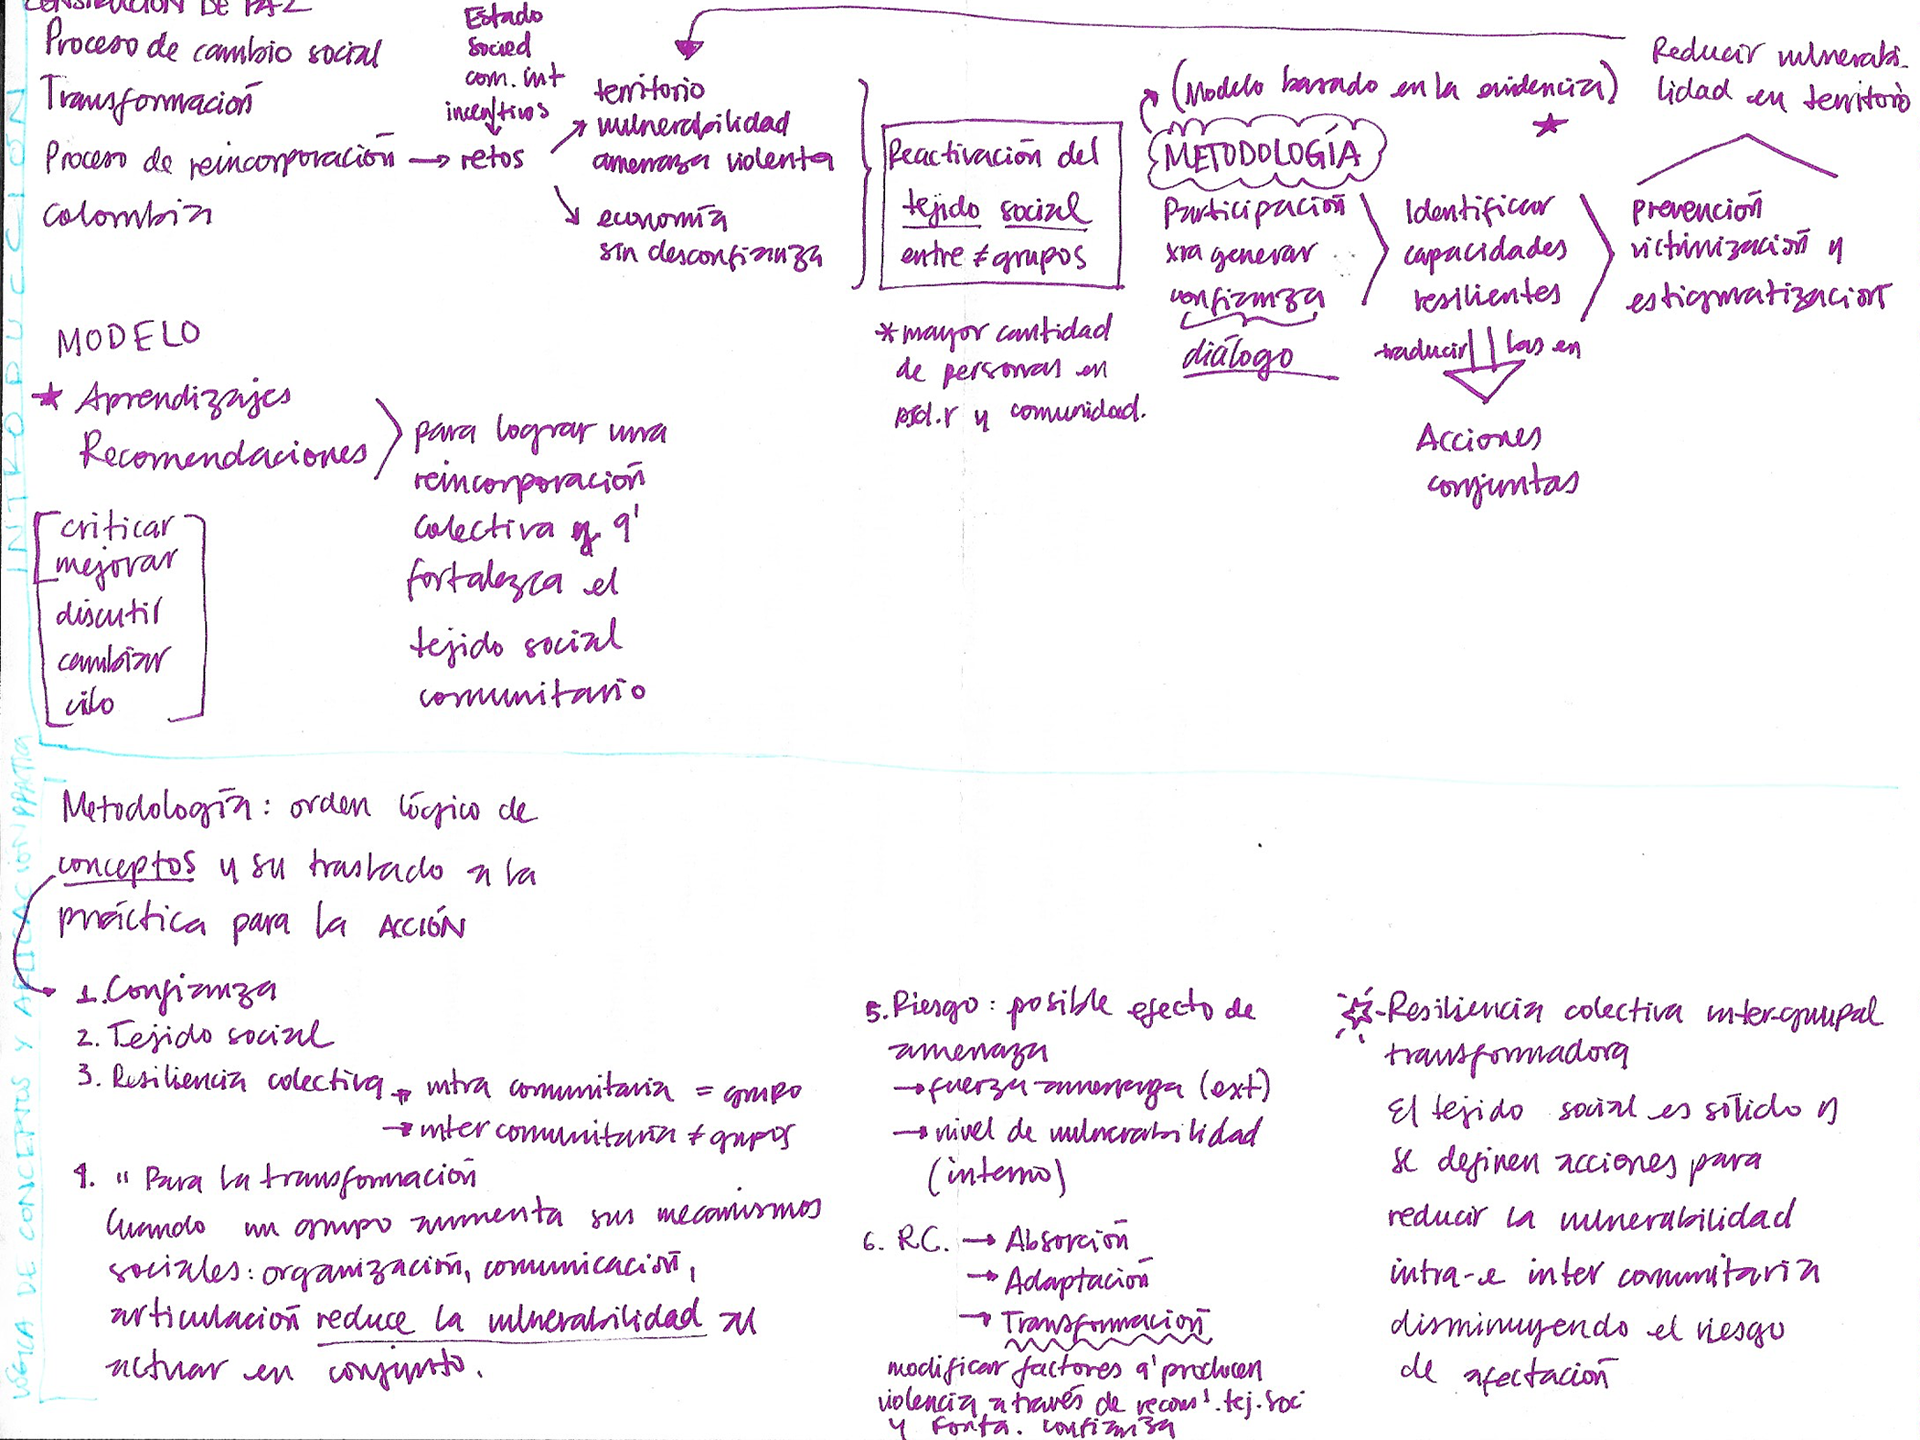 CONSTRUCCIÓN DE PAZ
Proceso de cambio social
Transformación
Proceso de reincorporación → retos
Colombia
Estado
Socied
com. int
incentivos
territorio
vulnerabilidad
amenaza violenta
economía
sin desconfianza
Reactivación del
tejido social
entre ≠ grupos
* mayor cantidad
de personas en
y comunidad.
(Modelo basado en la evidencia)
METODOLOGÍA
Participación
xra generar
confianza
diálogo
Identificar
capacidades
resilientes
traducir las en
Acciones
conjuntas
Reducir vulnerabi-
lidad en territorio
prevención
victimización y
estigmatización
INTRODUCCIÓN
MODELO
★ Aprendizajes
Recomendaciones
para lograr una
reincorporación
colectiva y q'
fortalezca el
tejido social
comunitario
criticar
mejorar
discutir
cambiar
LÓGICA DE CONCEPTOS Y APLICACIÓN PRÁCTICA
Metodología: orden lógico de
conceptos y su traslado a la
práctica para la ACCIÓN
1. Confianza
2. Tejido social
3. Resiliencia colectiva → intra comunitaria = grupo
→ inter comunitaria ≠ grupos
4. " Para la transformación
Cuando un grupo aumenta sus mecanismos
sociales: organización, comunicación,
articulación reduce la vulnerabilidad al
actuar en conjunto.
5. Riesgo: posible efecto de
amenaza
→ fuerza amenaza (ext)
→ nivel de vulnerabilidad
(interno)
6. R.C. → Absorción
→ Adaptación
→ Transformación
modificar factores q' producen
violencia a través de recons'. tej. soc
y confianza
Resiliencia colectiva intergrupal
transformadora
El tejido social es sólido y
se definen acciones para
reducir la vulnerabilidad
intra-e inter comunitaria
disminuyendo el riesgo
de afectación